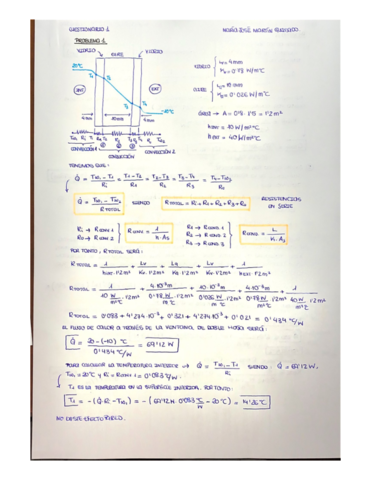 CUESTIONARIO 1
MARÍA JOSÉ MARTÍN
PROBLEMA 1
VIDRIO AIRE VIDRIO
20°C
INT EXT
-10°C
4 mm 10 mm 4 mm
VIDRIO { Lv = 4 mm
Kv = 0'78 W/m°C
AIRE { La = 10 mm
Ka = 0'026 W/m°C
A = 0'8 · 1'5 = 1'2 m²
hint = 10 W/m²°C
hext = 40 W/m²°C
CONVECCIÓN 1 CONVECCIÓN 2
CONDUCCIÓN
TENEMOS QUE:
Q̇ = T∞1 - T∞2 / RTOTAL SIENDO RTOTAL = Ri + R1 + R2 + R3 + Ro RESISTENCIAS EN SERIE
Ri → RCONV 1
Ro → RCONV 2
RCONV = 1 / h · As
R1 → RCOND 1
R2 → RCOND 2
R3 → RCOND 3
RCOND = L / K · As
POR TANTO, RTOTAL SERÁ:
RTOTAL = 1 / hint · 1'2m² + Lv / Kv · 1'2m² + La / Ka · 1'2m² + Lv / Kv · 1'2m² + 1 / hext · 1'2m²
RTOTAL = 1 / 10 W/m²°C · 1'2m² + 4·10⁻³ m / 0'78 W/m°C · 1'2m² + 10·10⁻³ m / 0'026 W/m°C · 1'2m² + 4·10⁻³ m / 0'78 W/m°C · 1'2m² + 1 / 40 W/m²°C · 1'2m²
RTOTAL = 0'083 + 4'274·10⁻³ + 0'321 + 4'274·10⁻³ + 0'021 = 0'434 °C/W
EL FLUJO DE CALOR A TRAVÉS DE LA VENTANA DE DOBLE HOJA SERÁ:
Q̇ = 20 - (-10) °C / 0'434 °C/W = 69'12 W
PARA CALCULAR LA TEMPERATURA INTERIOR → Q̇ = T∞1 - T1 / Ri SIENDO: Q̇ = 69'12 W,
T∞1 = 20°C y Ri = RCONV 1 = 0'083 °C/W.
T1 ES LA TEMPERATURA EN LA SUPERFICIE INTERIOR. POR TANTO:
T1 = - (Q̇ · Ri - T∞1) = - (69'12 W · 0'083 °C/W - 20°C) = 14'26 °C